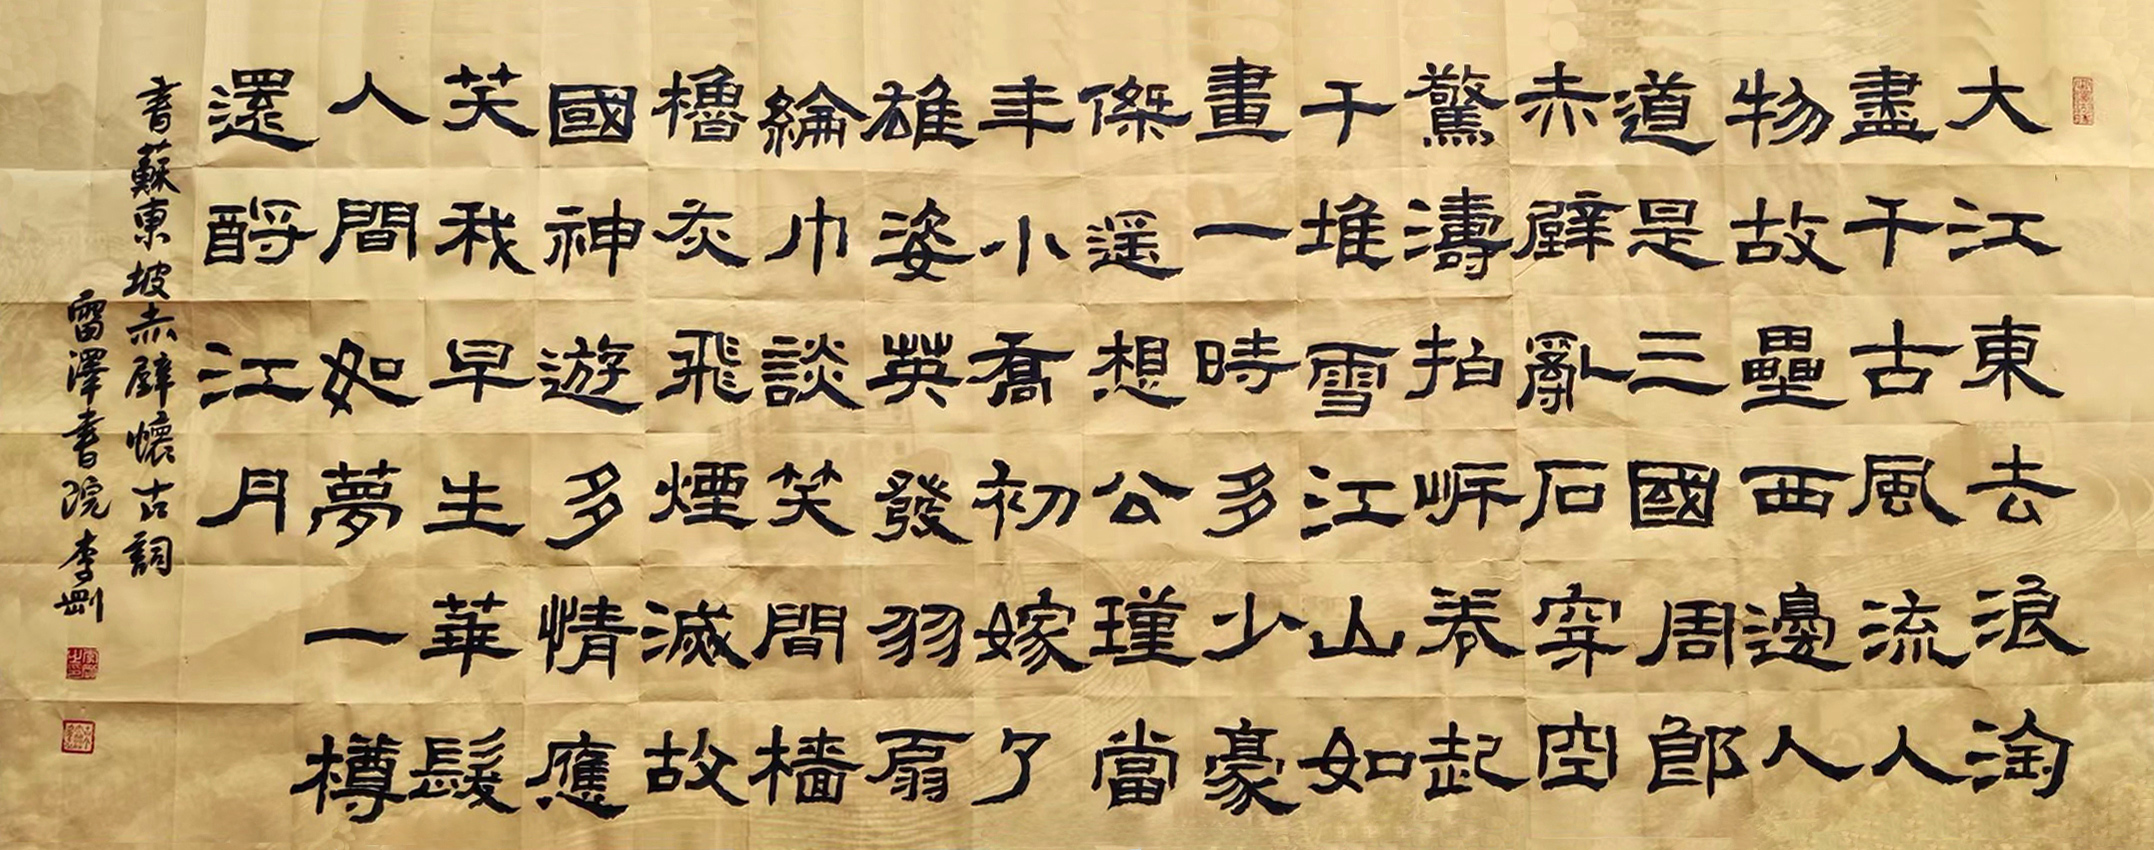 大江東去浪淘
盡千古風流人
物故壘西邊人
道是三國周郎
赤壁亂石穿空
驚濤拍岸卷起
千堆雪江山如
畫一時多少豪
傑遥想公瑾當
年小喬初嫁了
雄姿英發羽扇
綸巾談笑間檣
櫓灰飛煙滅故
國神遊多情應
笑我早生華髮
人間如夢一樽
還酹江月
書蘇東坡赤壁懷古詞
雷澤書院李